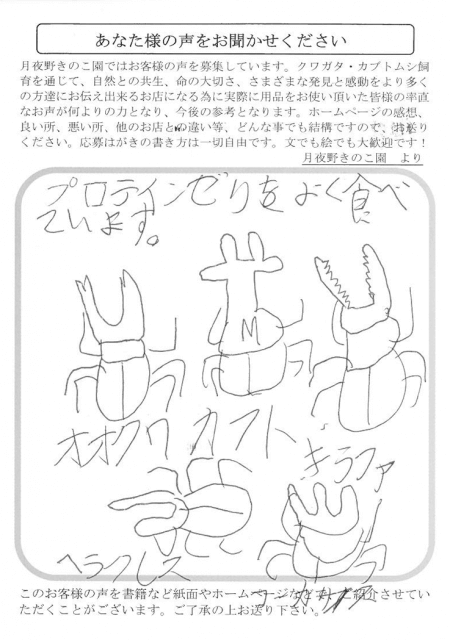 あなた様の声をお聞かせください
月夜野きのこ園ではお客様の声を募集しています。クワガタ・カブトムシ飼
育を通じて、自然との共生、命の大切さ、さまざまな発見と感動をより多く
の方達にお伝え出来るお店になる為に実際に用品をお使い頂いた皆様の率直
なお声が何よりの力となり、今後の参考となります。ホームページの感想、
良い所、悪い所、他のお店との違い等、どんな事でも結構ですので、お送り
ください。応募はがきの書き方は一切自由です。文でも絵でも大歓迎です！
月夜野きのこ園　より
プロテインゼリをよく食べ
ています。
M
オオクワ カフト
キラファ
ヘラクレス
このお客様の声を書籍など紙面やホームページなどでご紹介させてい
ただくことがございます。ご了承の上お送り下さい。